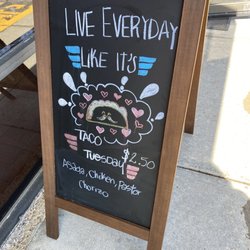 Live Everyday
Like it's
Taco
Tuesday $2.50
Asada, Chicken, Pastor
Chorizo